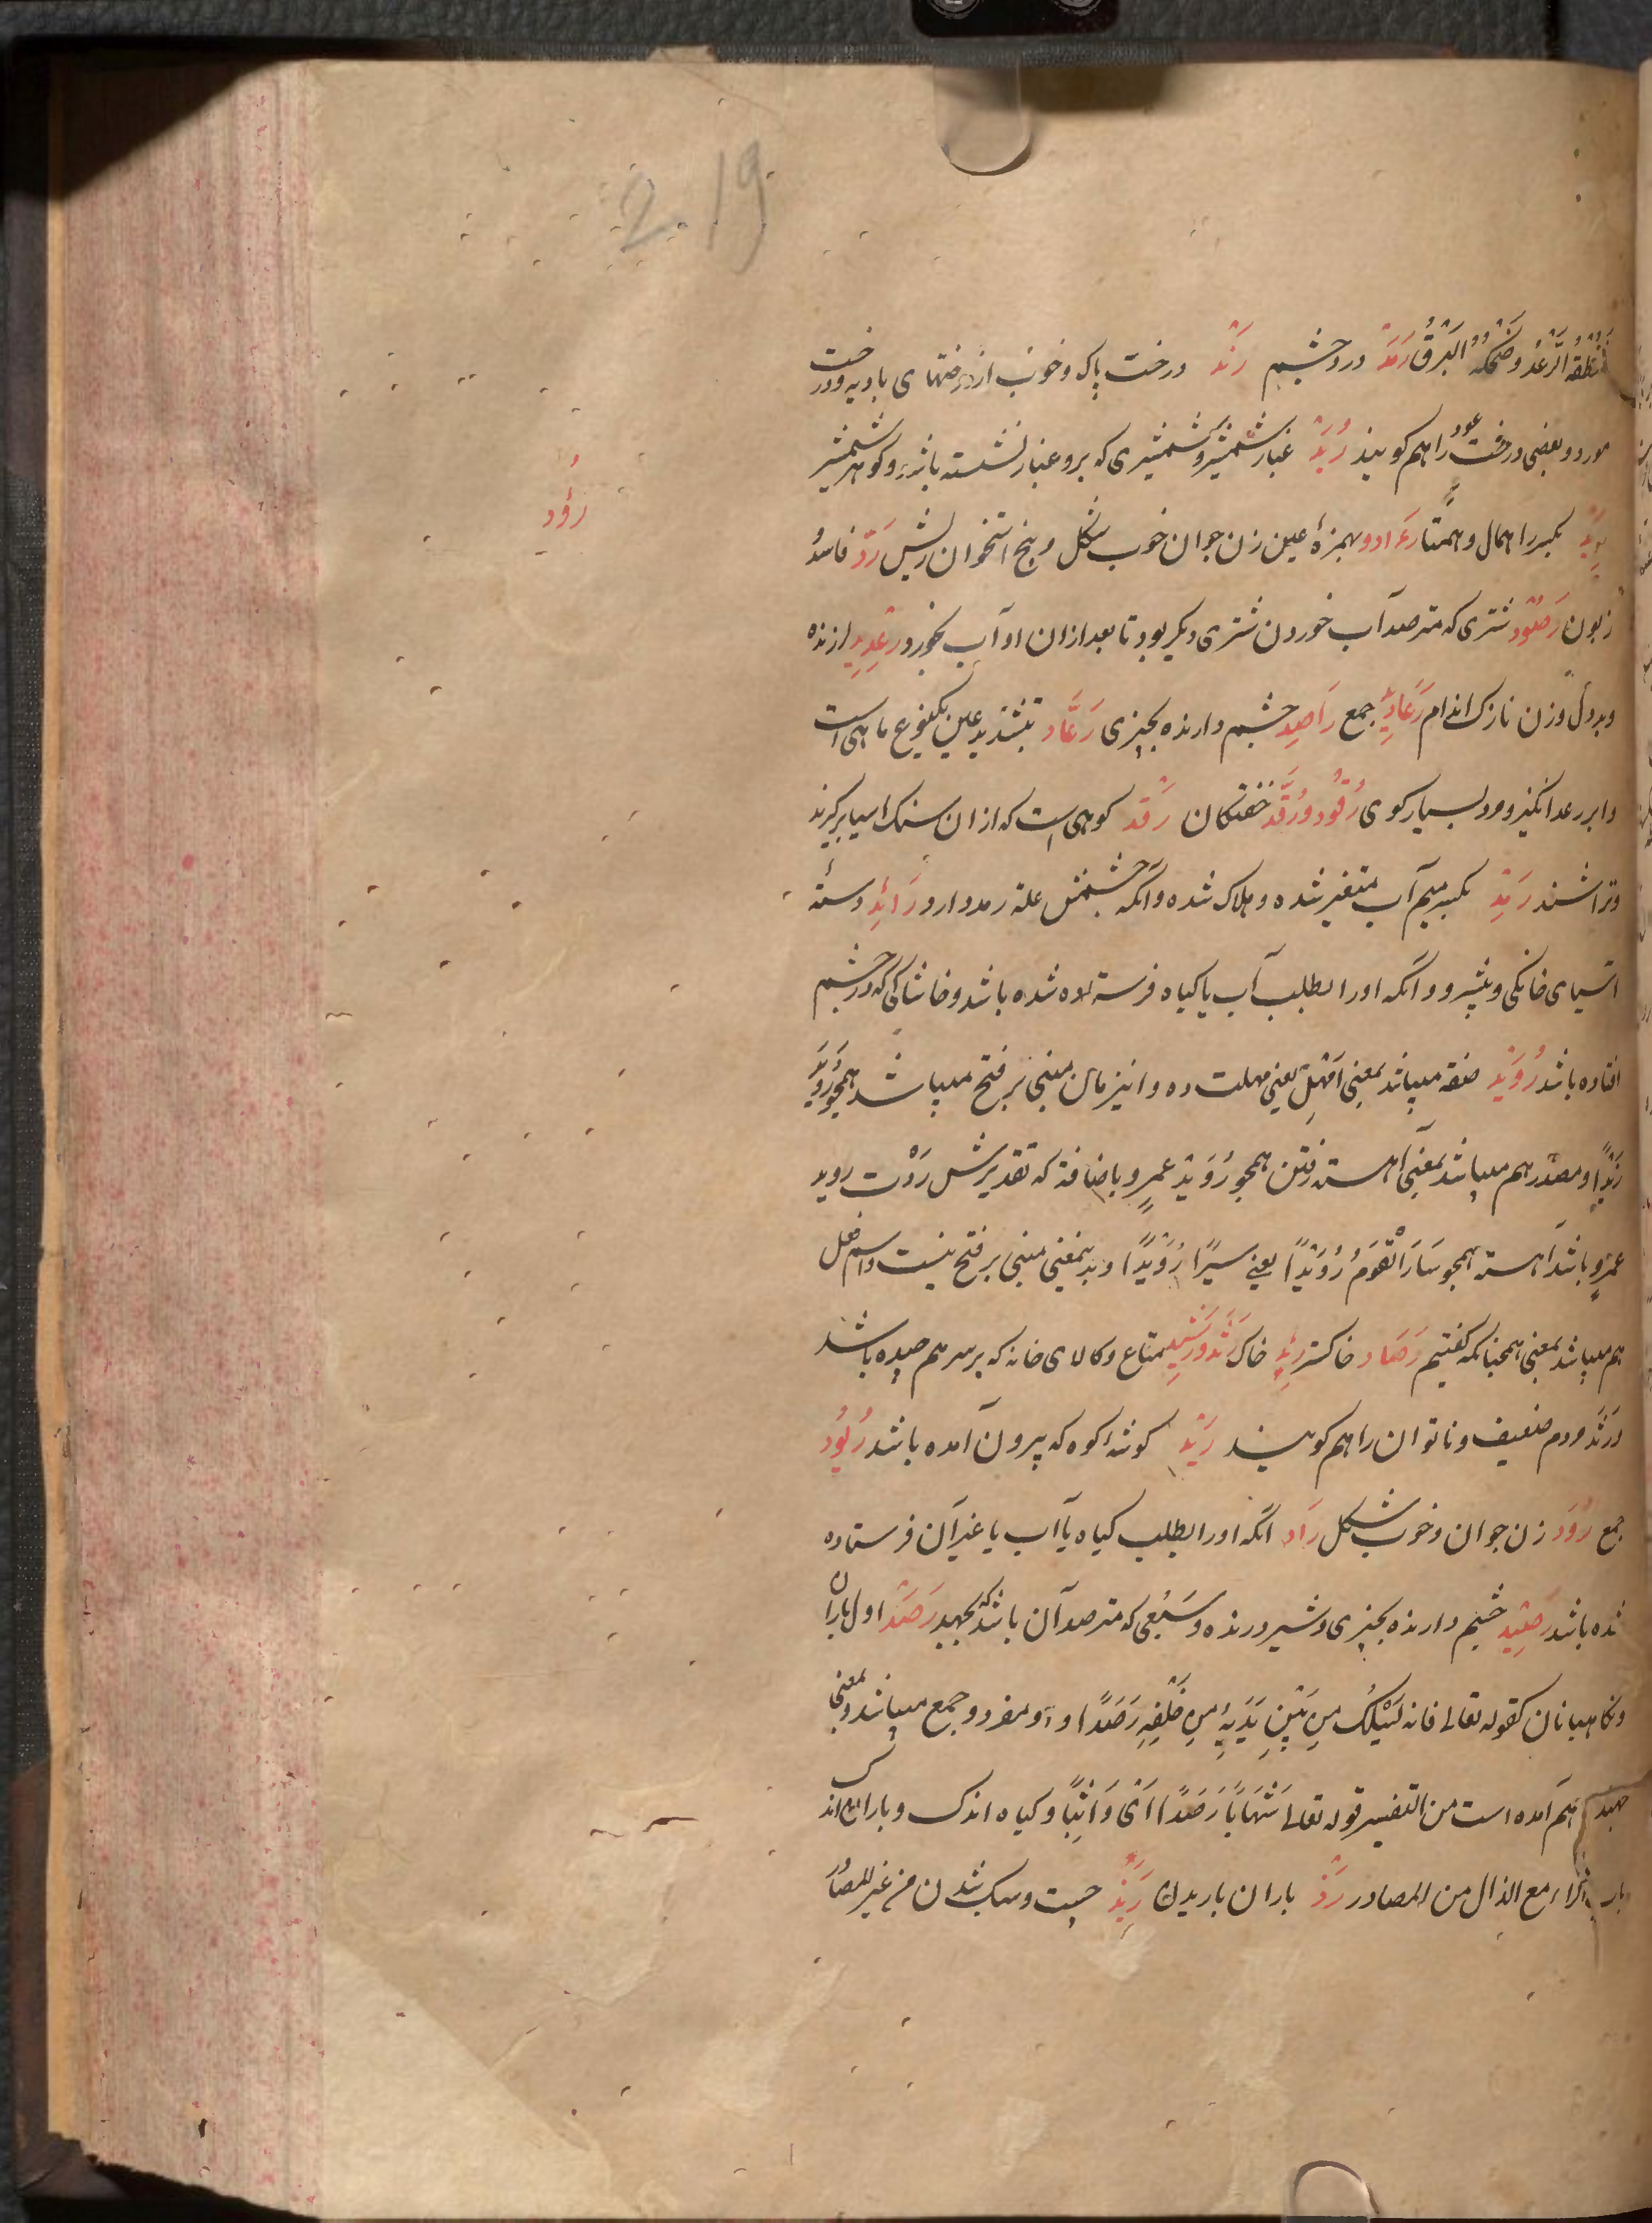 219
فَمَنْطِقُهُ الرَّعْدُ وضِحْكُهُ الْبَرْقُ رَمَد درد چشم رَنْد درخت پاک و خوب از درختهای بادیه و درخت
مورد و بعضی درخت عود را هم کویند رُبَد غبار شمشیر و شمشیری که برو غبار نشسته باشد و کوهر شمشیر
رِیْد بکسر را همال و همتا رَءد و بهمزهٔ عین زن جوان خوب شکل و بیخ استخوان ریش رَدّ فاسد و
رؤد
زبون رَصُوْد شتری که مترصد آب خوردن شتری دیکر بود تا بعد ازان او آب بخورد رِعْدِید لرزنده
وبددل و زن نازک اندام رَعَادِیْد جمع رَاصِد چشم دارنده بچیزی رَعَّاد بتشدید عین یکنوع ماهی است
و ابر رعد انکیز و مرد بسیار کوی رُقُود و رُقَّد خفتکان رَقْد کوهی است که ازان سنک اسیا برکیرند
و تراشند رَمِد بکسر میم آب متغیر شده و هلاک شده و آنکه چشمش علة رمد دارد رَائِد دستهٔ
اسیای خانکی و پیشرو و آنکه اورا بطلب آب یا کیاه فرستاده شده باشد و خاشاکی که در چشم
افتاده باشد رُوَیْد صفة میباشد بمعنی اَمْهِلْ یعنی مهلت ده و این زمان مبنی بر فتح میباشد همچو رُوَیْدَ
زَیْدًا و مصدر هم میباشد بمعنی آهسته رفتن همچو رُوَیْدَ عمرٍو باضافة که تقدیرش رَوَدْت روید
عمرٍو باشد آهسته همچو سَارَ الْقَوْمُ رُوَیْدًا یعنی سیرًا رُوَیْدًا و بدینمعنی مبنی بر فتح نیست و اسم فعل
هم میباشد بمعنی همچنانکه کفتیم رَمَاد خاکستر خاک رَثَد و رَثِید متاع و کالای خانه که بر سر هم چیده باشد
و رَثَد مردم ضعیف و ناتوان را هم کویند رَیْد کوشهٔ کوه که بیرون آمده باشد رُیُود
جمع رُؤد زن جوان و خوب شکل رَاد آنکه اورا بطلب کیاه یا آب یا غیر آن فرستاده
شده باشد رَصِیْد چشم دارنده بچیزی و شیر درنده و سَبُعی که مترصد آن باشد که بجهد رَصَد اول باران
و نکاهبانان کقوله تعالی فانه یَسْلُکُ مِن بَیْنِ یَدَیْهِ مِن خَلْفِهِ رَصَدًا و او مفرد و جمع میباشد و بمعنی
هم آمده است من التفسیر قوله تعالی شِهَابًا رَصَدًا ای وکیاه اندک و باران اندک
باب الراء مع الذال من المصادر رَذّ باران باریدن رَبَذ چست و سبک شدن من غیر المصادر